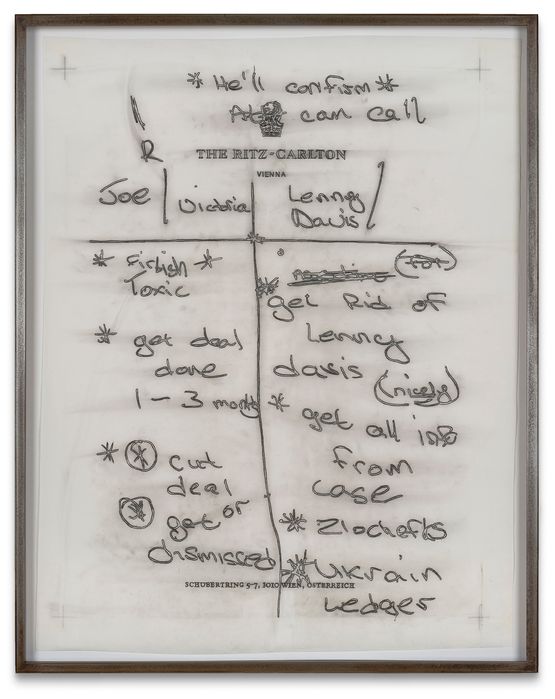 * He'll confirm *
can call
R
THE RITZ-CARLTON
VIENNA
Joe | Victoria
Lenny
Davis
* Firtish *
Toxic
* get deal
done
1 - 3 months
* cut
deal
* get or
dismissed
* get Rid of
Lenny
davis
(nicely)
* get all info
from
case
* Zlochefts
* Ukrain
Ledger
SCHUBERTRING 5-7, 1010 WIEN, ÖSTERREICH